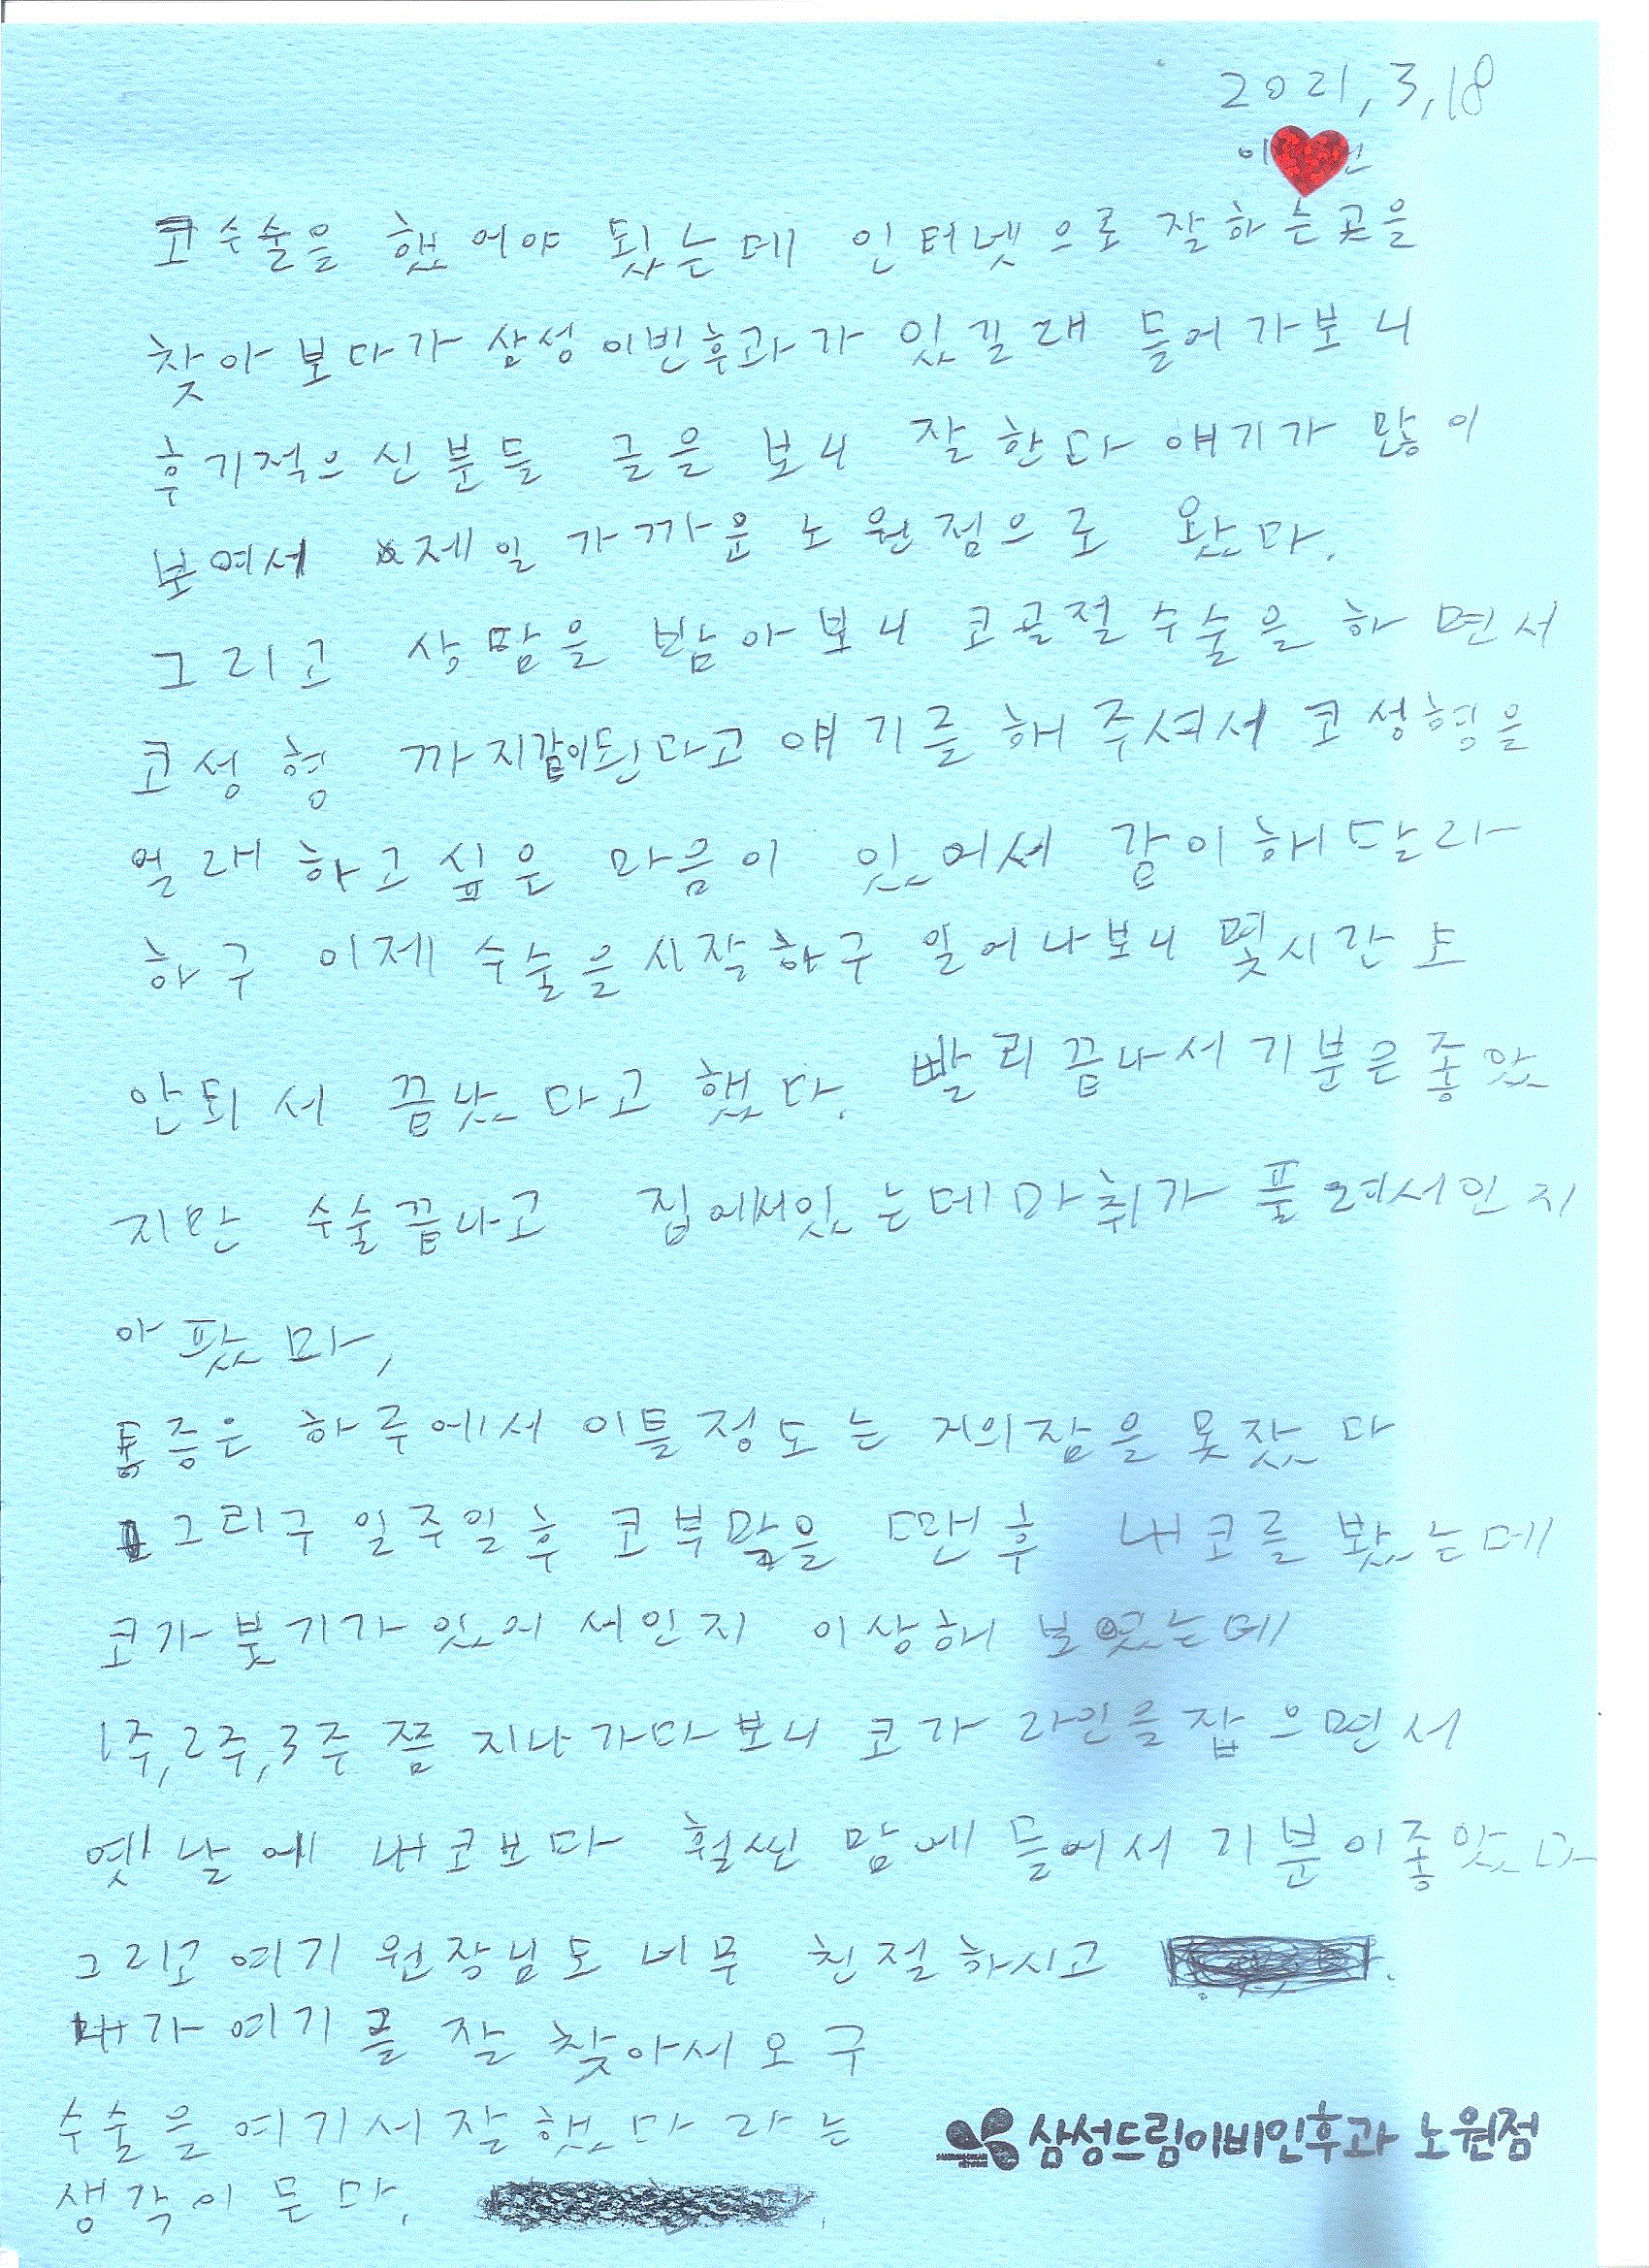 2021, 3, 18
이
코수술을 했어야 됐는데 인터넷으로 잘하는곳을
찾아보다가 삼성 이빈후과가 있길래 들어가보니
후기적으신분들 글을 보니 잘한다 얘기가 많이
보여서 제일 가까운 노원점으로 왔다.
그리고 상담을 받아보니 코골절수술을 하면서
코성형 까지같이된다고 얘기를해주셔서 코성형을
원래하고싶은 마음이 있어서 같이해달라
하구 이제 수술을시작하구 일어나보니 몇시간도
안되서 끝났다고 했다. 빨리끝나서기분은좋았
지만 수술끝나고 집에서있는데마취가 풀려서인지
아팠다,
통증은 하루에서 이틀정도는 거의잠을 못잤다
그리구 일주일후 코부목을 땐후 내코를 봤는데
코가 붓기가 있어서인지 이상해 보였는데
1주,2주,3주 쯤 지나가다보니 코가 라인을 잡으면서
옛날에 내코보다 훨씬 맘에 들어서 기분이좋았다
그리고 여기 원장님도 너무 친절하시고
내가 여기를 잘 찾아서오구
수술을여기서잘했다라는
생각이 든다.
삼성드림이비인후과 노원점